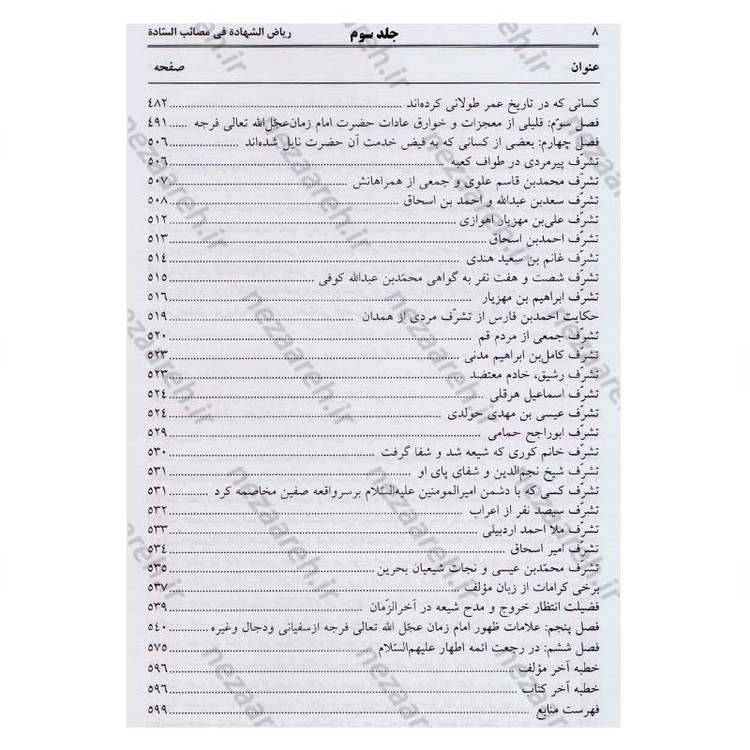 ۸ جلد سوم ریاض الشهادة فی مصائب السّادة
عنوان صفحه
کسانی که در تاریخ عمر طولانی کرده‌اند ۴۸۲
فصل سوّم: قلیلی از معجزات و خوارق عادات حضرت امام زمان‌عجّل‌الله تعالی فرجه ۴۹۱
فصل چهارم: بعضی از کسانی که به فیض خدمت آن حضرت نایل شده‌اند ۵۰۶
تشرّف پیرمردی در طواف کعبه ۵۰۶
تشرّف محمدبن قاسم علوی و جمعی از همراهانش ۵۰۷
تشرّف سعدبن عبدالله و احمد بن اسحاق ۵۰۸
تشرّف علی‌بن مهزیار اهوازی ۵۱۲
تشرّف احمدبن اسحاق ۵۱۳
تشرّف غانم بن سعید هندی ۵۱۴
تشرّف شصت و هفت نفر به گواهی محمّدبن عبدالله کوفی ۵۱۵
تشرّف ابراهیم بن مهزیار ۵۱۶
حکایت احمدبن فارس از تشرّف مردی از همدان ۵۱۹
تشرّف جمعی از مردم قم ۵۲۰
تشرّف کامل‌بن ابراهیم مدنی ۵۲۳
تشرّف رشیق، خادم معتضد ۵۲۳
تشرّف اسماعیل هرقلی ۵۲۴
تشرّف عیسی بن مهدی حولدی ۵۲۴
تشرّف ابوراجح حمامی ۵۲۹
تشرّف خانم کوری که شیعه شد و شفا گرفت ۵۳۰
تشرّف شیخ نجم‌الدین و شفای پای او ۵۳۱
تشرّف کسی که با دشمن امیرالمومنین علیه‌السّلام برسرواقعه صفین مخاصمه کرد ۵۳۱
تشرّف سیصد نفر از اعراب ۵۳۲
تشرّف ملا احمد اردبیلی ۵۳۳
تشرّف امیر اسحاق ۵۳۴
تشرّف محمّدبن عیسی و نجات شیعیان بحرین ۵۳۵
برخی کرامات از زبان مؤلف ۵۳۷
فضیلت انتظار خروج و مدح شیعه در آخرالزّمان ۵۳۹
فصل پنجم: علامات ظهور امام زمان عجّل الله تعالی فرجه ازسفیانی ودجال وغیره ۵۴۰
فصل ششم: در رجعت ائمه اطهار علیهم‌السّلام ۵۷۵
خطبه آخر مؤلف ۵۹۶
خطبه آخر کتاب ۵۹۶
فهرست منابع ۵۹۹
nezaareh.ir